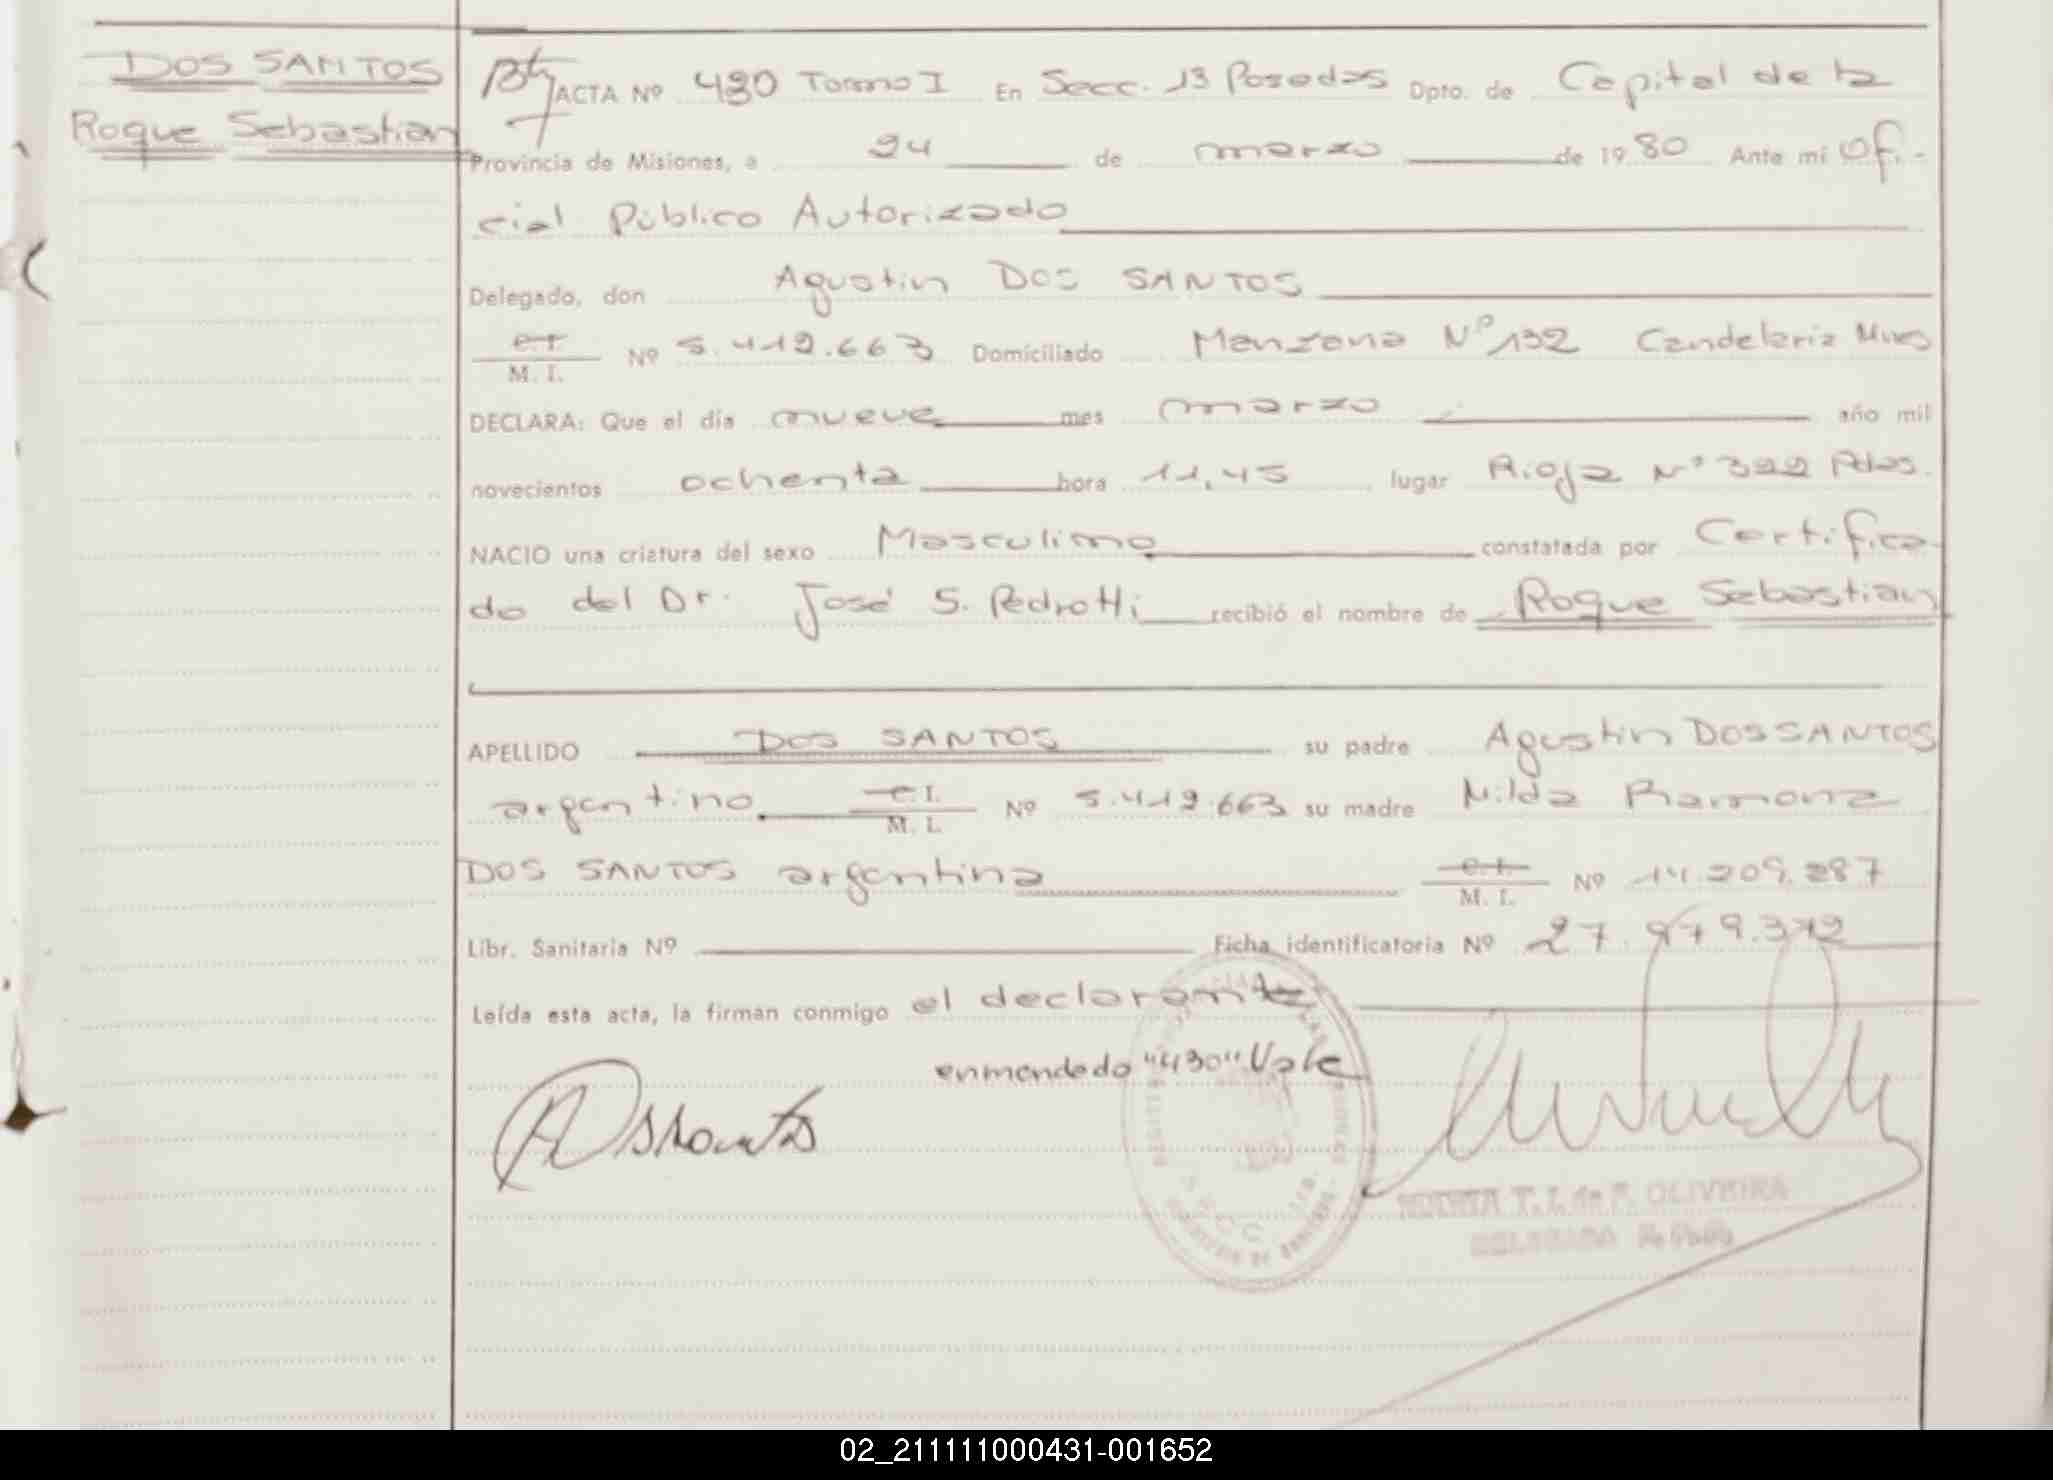 DOS SANTOS
Roque Sebastian
ACTA Nº 430 Tomo I En Secc. 13 Posadas Dpto. de Capital de la
Provincia de Misiones, a 24 de marzo de 1980 Ante mi Ofi-
cial Público Autorizado
Delegado, don Agustin DOS SANTOS
C.I. M. I. Nº 5.419.663 Domiciliado Manzana Nº 132 Candelaria Mnes
DECLARA: Que el día nueve mes marzo año mil
novecientos ochenta hora 11,45 lugar Rioja Nº 322 Pdas.
NACIO una criatura del sexo Masculino constatada por Certifica-
do del Dr. José S. Pedrotti recibió el nombre de Roque Sebastian
APELLIDO DOS SANTOS su padre Agustin DOS SANTOS
argentino C.I. M. I. Nº 5.419.663 su madre Nilda Ramona
DOS SANTOS argentina C.I. M. I. Nº 14.209.287
Libr. Sanitaria Nº Ficha identificatoria Nº 27.979.372
Leída esta acta, la firman conmigo el declarante
enmendado "430" Vale
T. I. de P. OLIVEIRA
DELEGADA
02_211111000431-001652